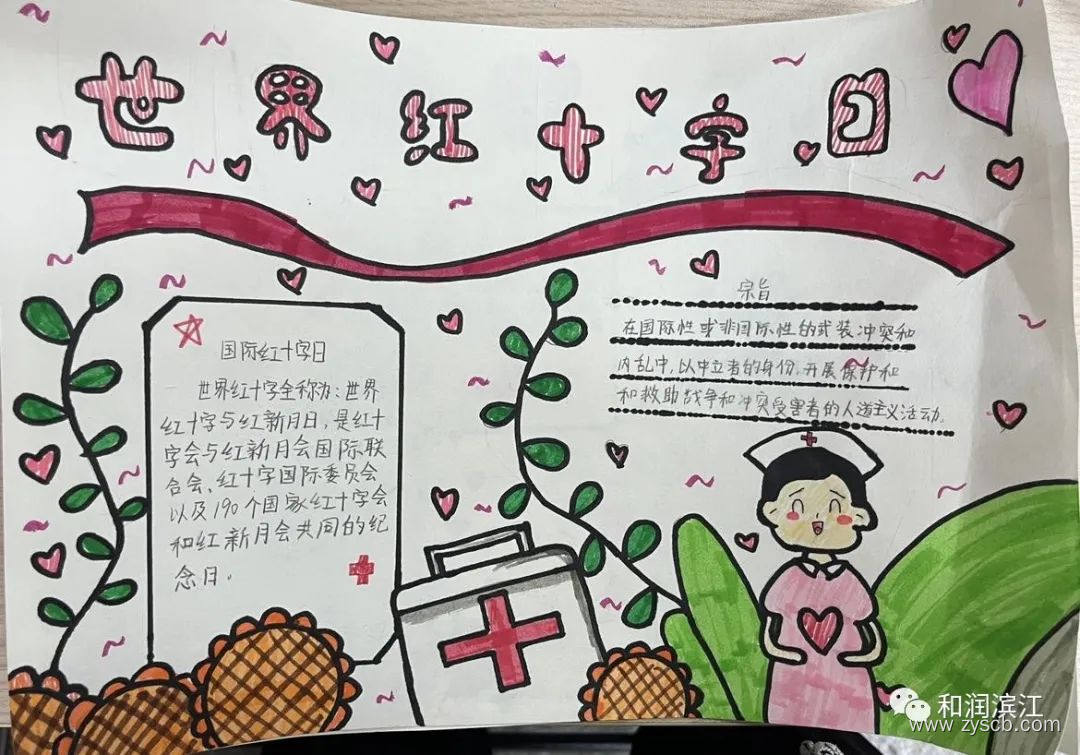 世界红十字日
国际红十字日
世界红十字全称为:世界
红十字与红新月日,是红十
字会与红新月会国际联
合会、红十字国际委员会
以及190个国家红十字会
和红新月会共同的纪
念日。
宗旨
在国际性或非国际性的武装冲突和
内乱中,以中立者的身份,开展保护和
和救助战争和冲突受害者的人道主义活动.
和润滨江
www.zyscb.com